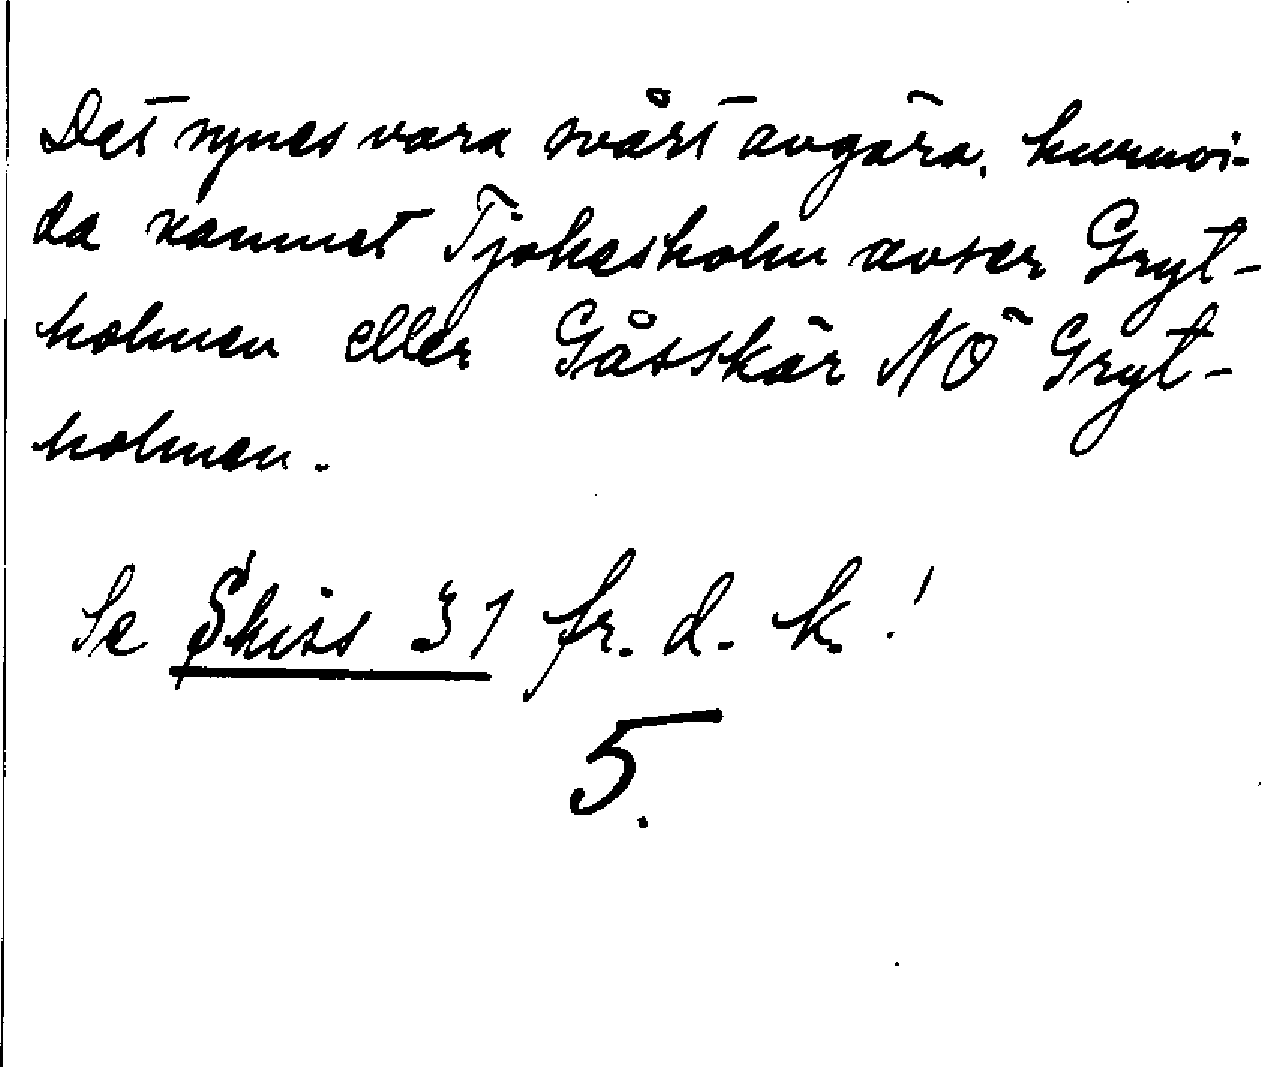 Det synes vara svårt avgöra, huruvi-
da namnet Tjokesholm avser Gryt-
holmen eller Gåsskär NÖ Gryt-
holmen.
Se Skiss 31 fr. d. k!
5.